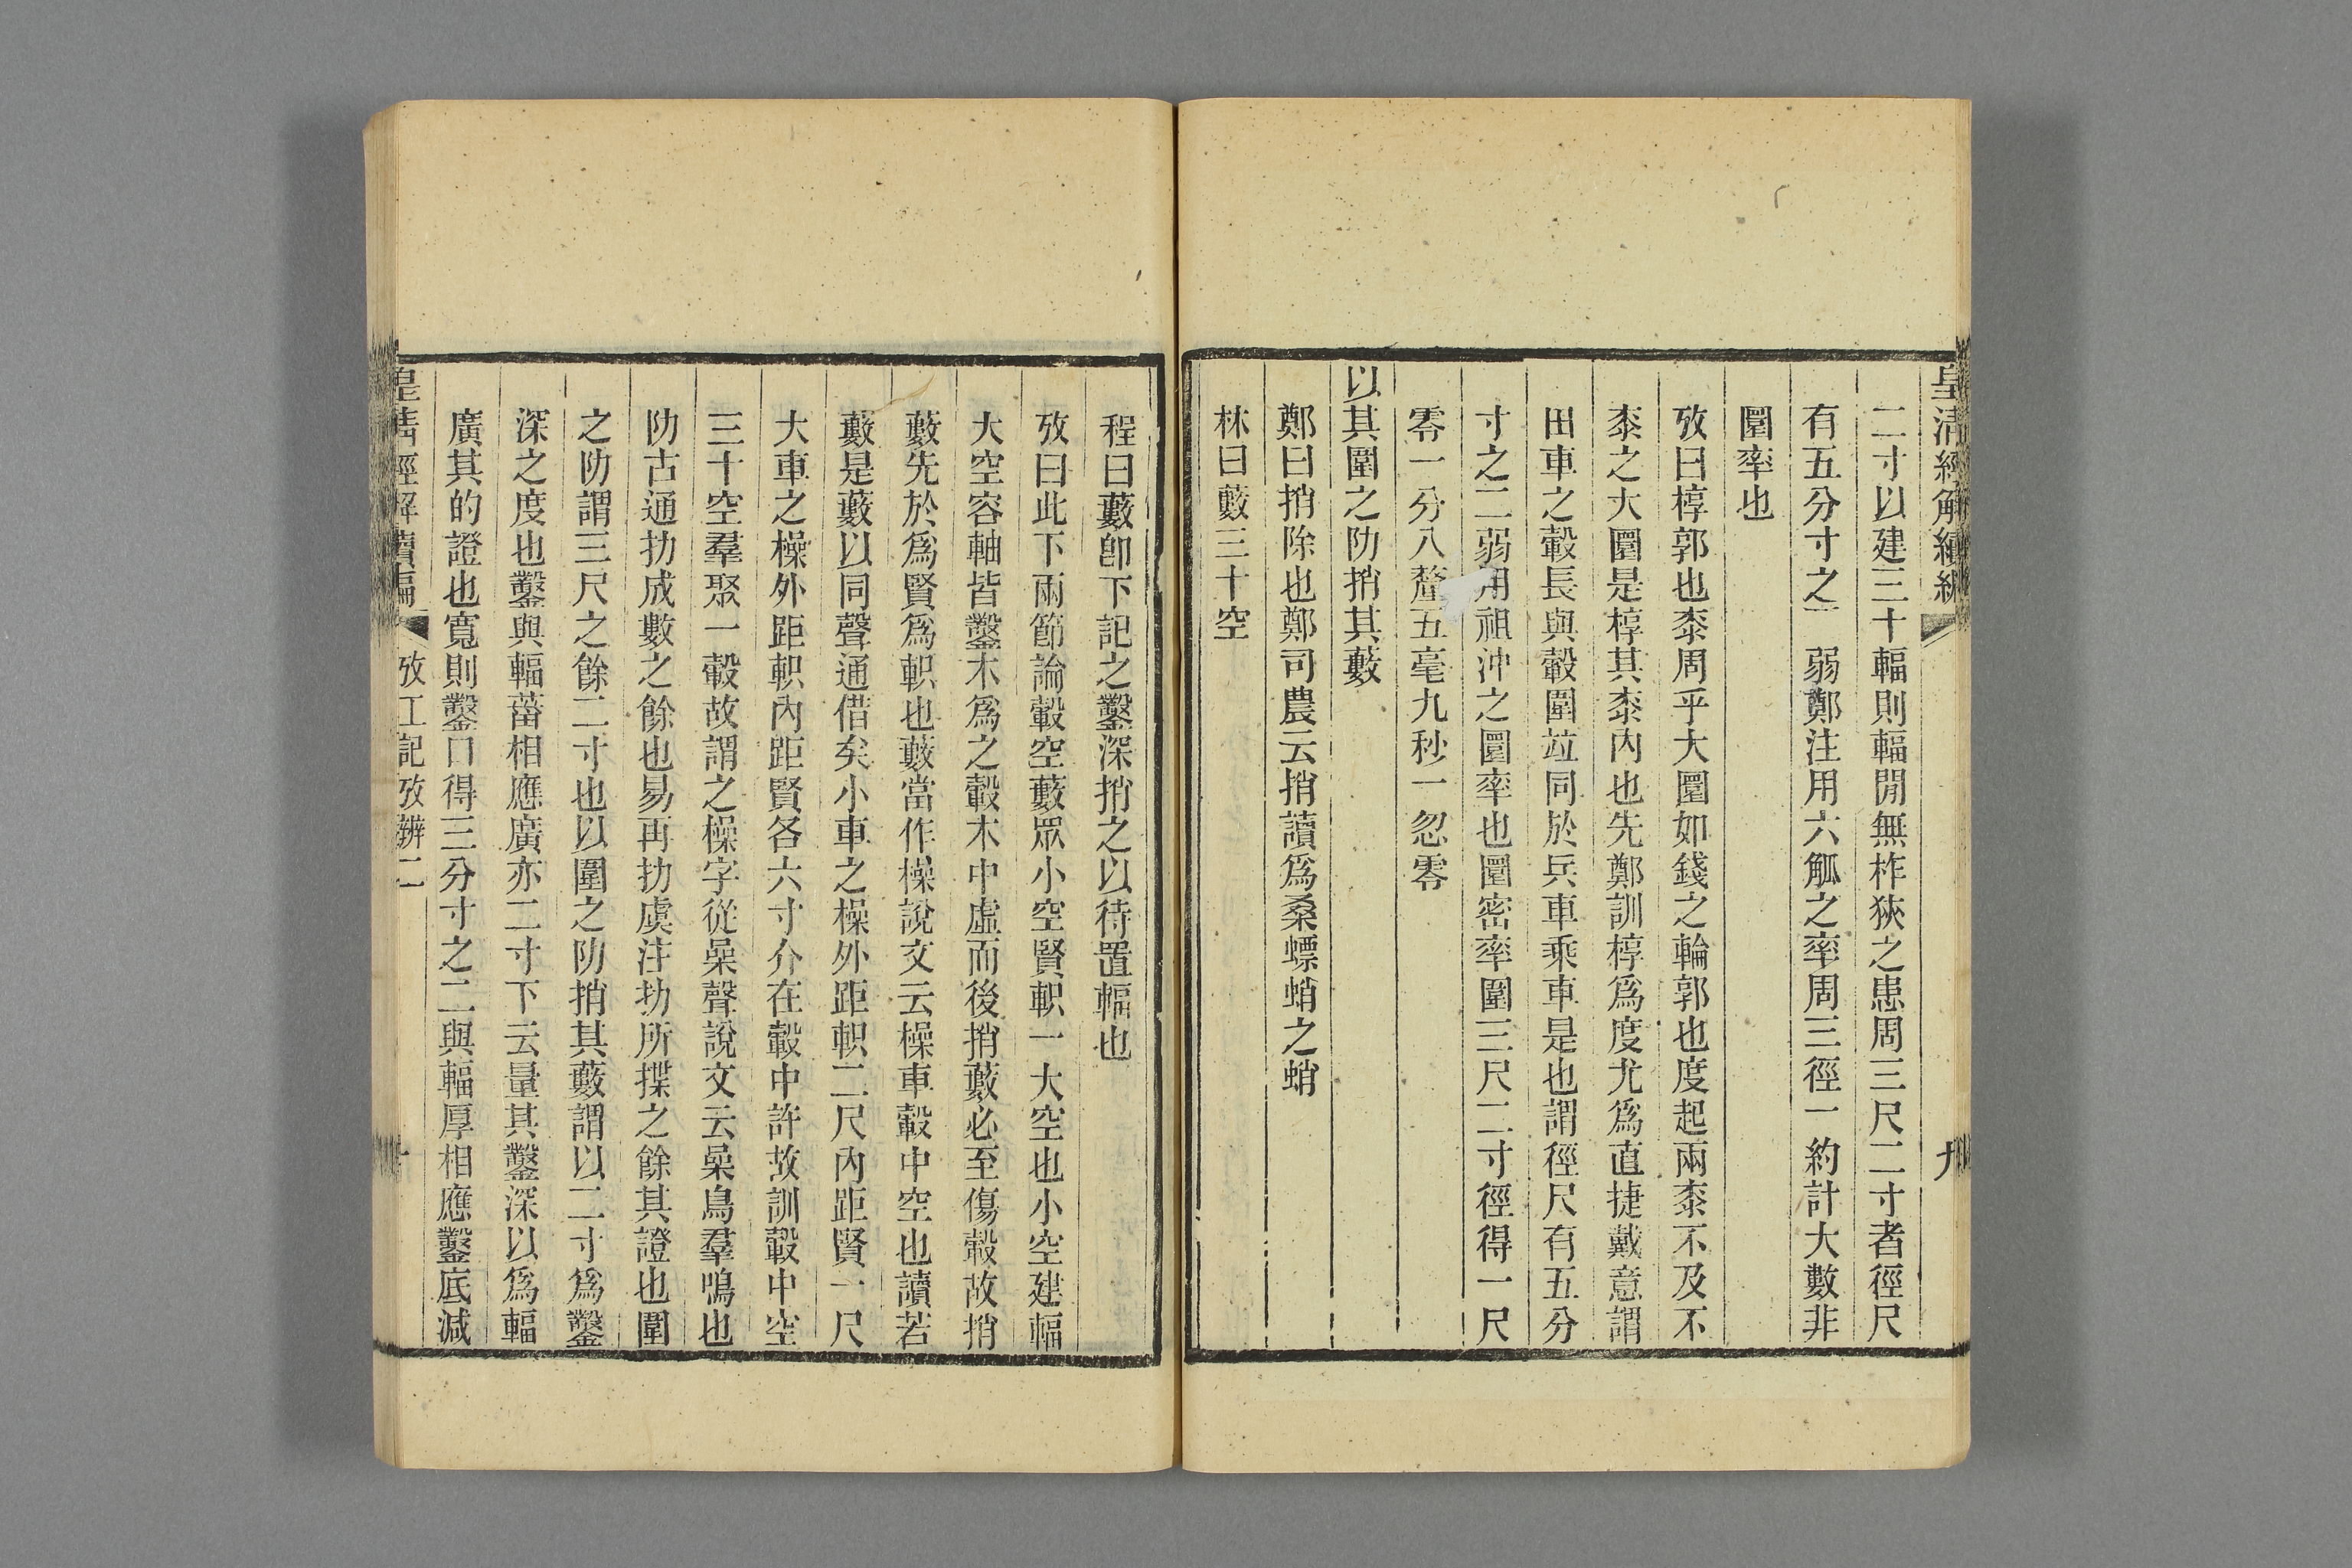 皇清經解續編
九
二寸以建三十輻則輻閒無柞狹之患周三尺二寸者徑尺
有五分寸之一弱鄭注用六觚之率周三徑一約計大數非
圜率也
攷曰椁郭也桼周乎大圜如錢之輪郭也度起兩桼不及不
桼之大圜是椁其桼內也先鄭訓椁爲度尤爲直捷戴意謂
田車之轂長與轂圍竝同於兵車乘車是也謂徑尺有五分
寸之二弱用祖沖之圜率也圜密率圍三尺二寸徑得一尺
零一分八釐五毫九秒一忽零
以其圍之阞捎其藪
鄭曰捎除也鄭司農云捎讀爲桑螵蛸之蛸
林曰藪三十空
程曰藪卽下記之鑿深捎之以待置輻也
攷曰此下兩節論轂空藪眾小空賢軹一大空也小空建輻
大空容軸皆鑿木爲之轂木中虛而後捎藪必至傷轂故捎
藪先於爲賢爲軹也藪當作橾說文云橾車轂中空也讀若
藪是藪以同聲通借矣小車之橾外距軹二尺內距賢一尺
大車之橾外距軹內距賢各六寸介在轂中許故訓轂中空
三十空羣聚一轂故謂之橾字從喿聲說文云喿鳥羣鳴也
阞古通扐成數之餘也易再扐虞注扐所揲之餘其證也圍
之阞謂三尺之餘二寸也以圍之阞捎其藪謂以二寸爲鑿
深之度也鑿與輻菑相應廣亦二寸下云量其鑿深以爲輻
廣其的證也寬則鑿口得三分寸之二與輻厚相應鑿底減
皇清經解續編
攷工記攷辨二
十